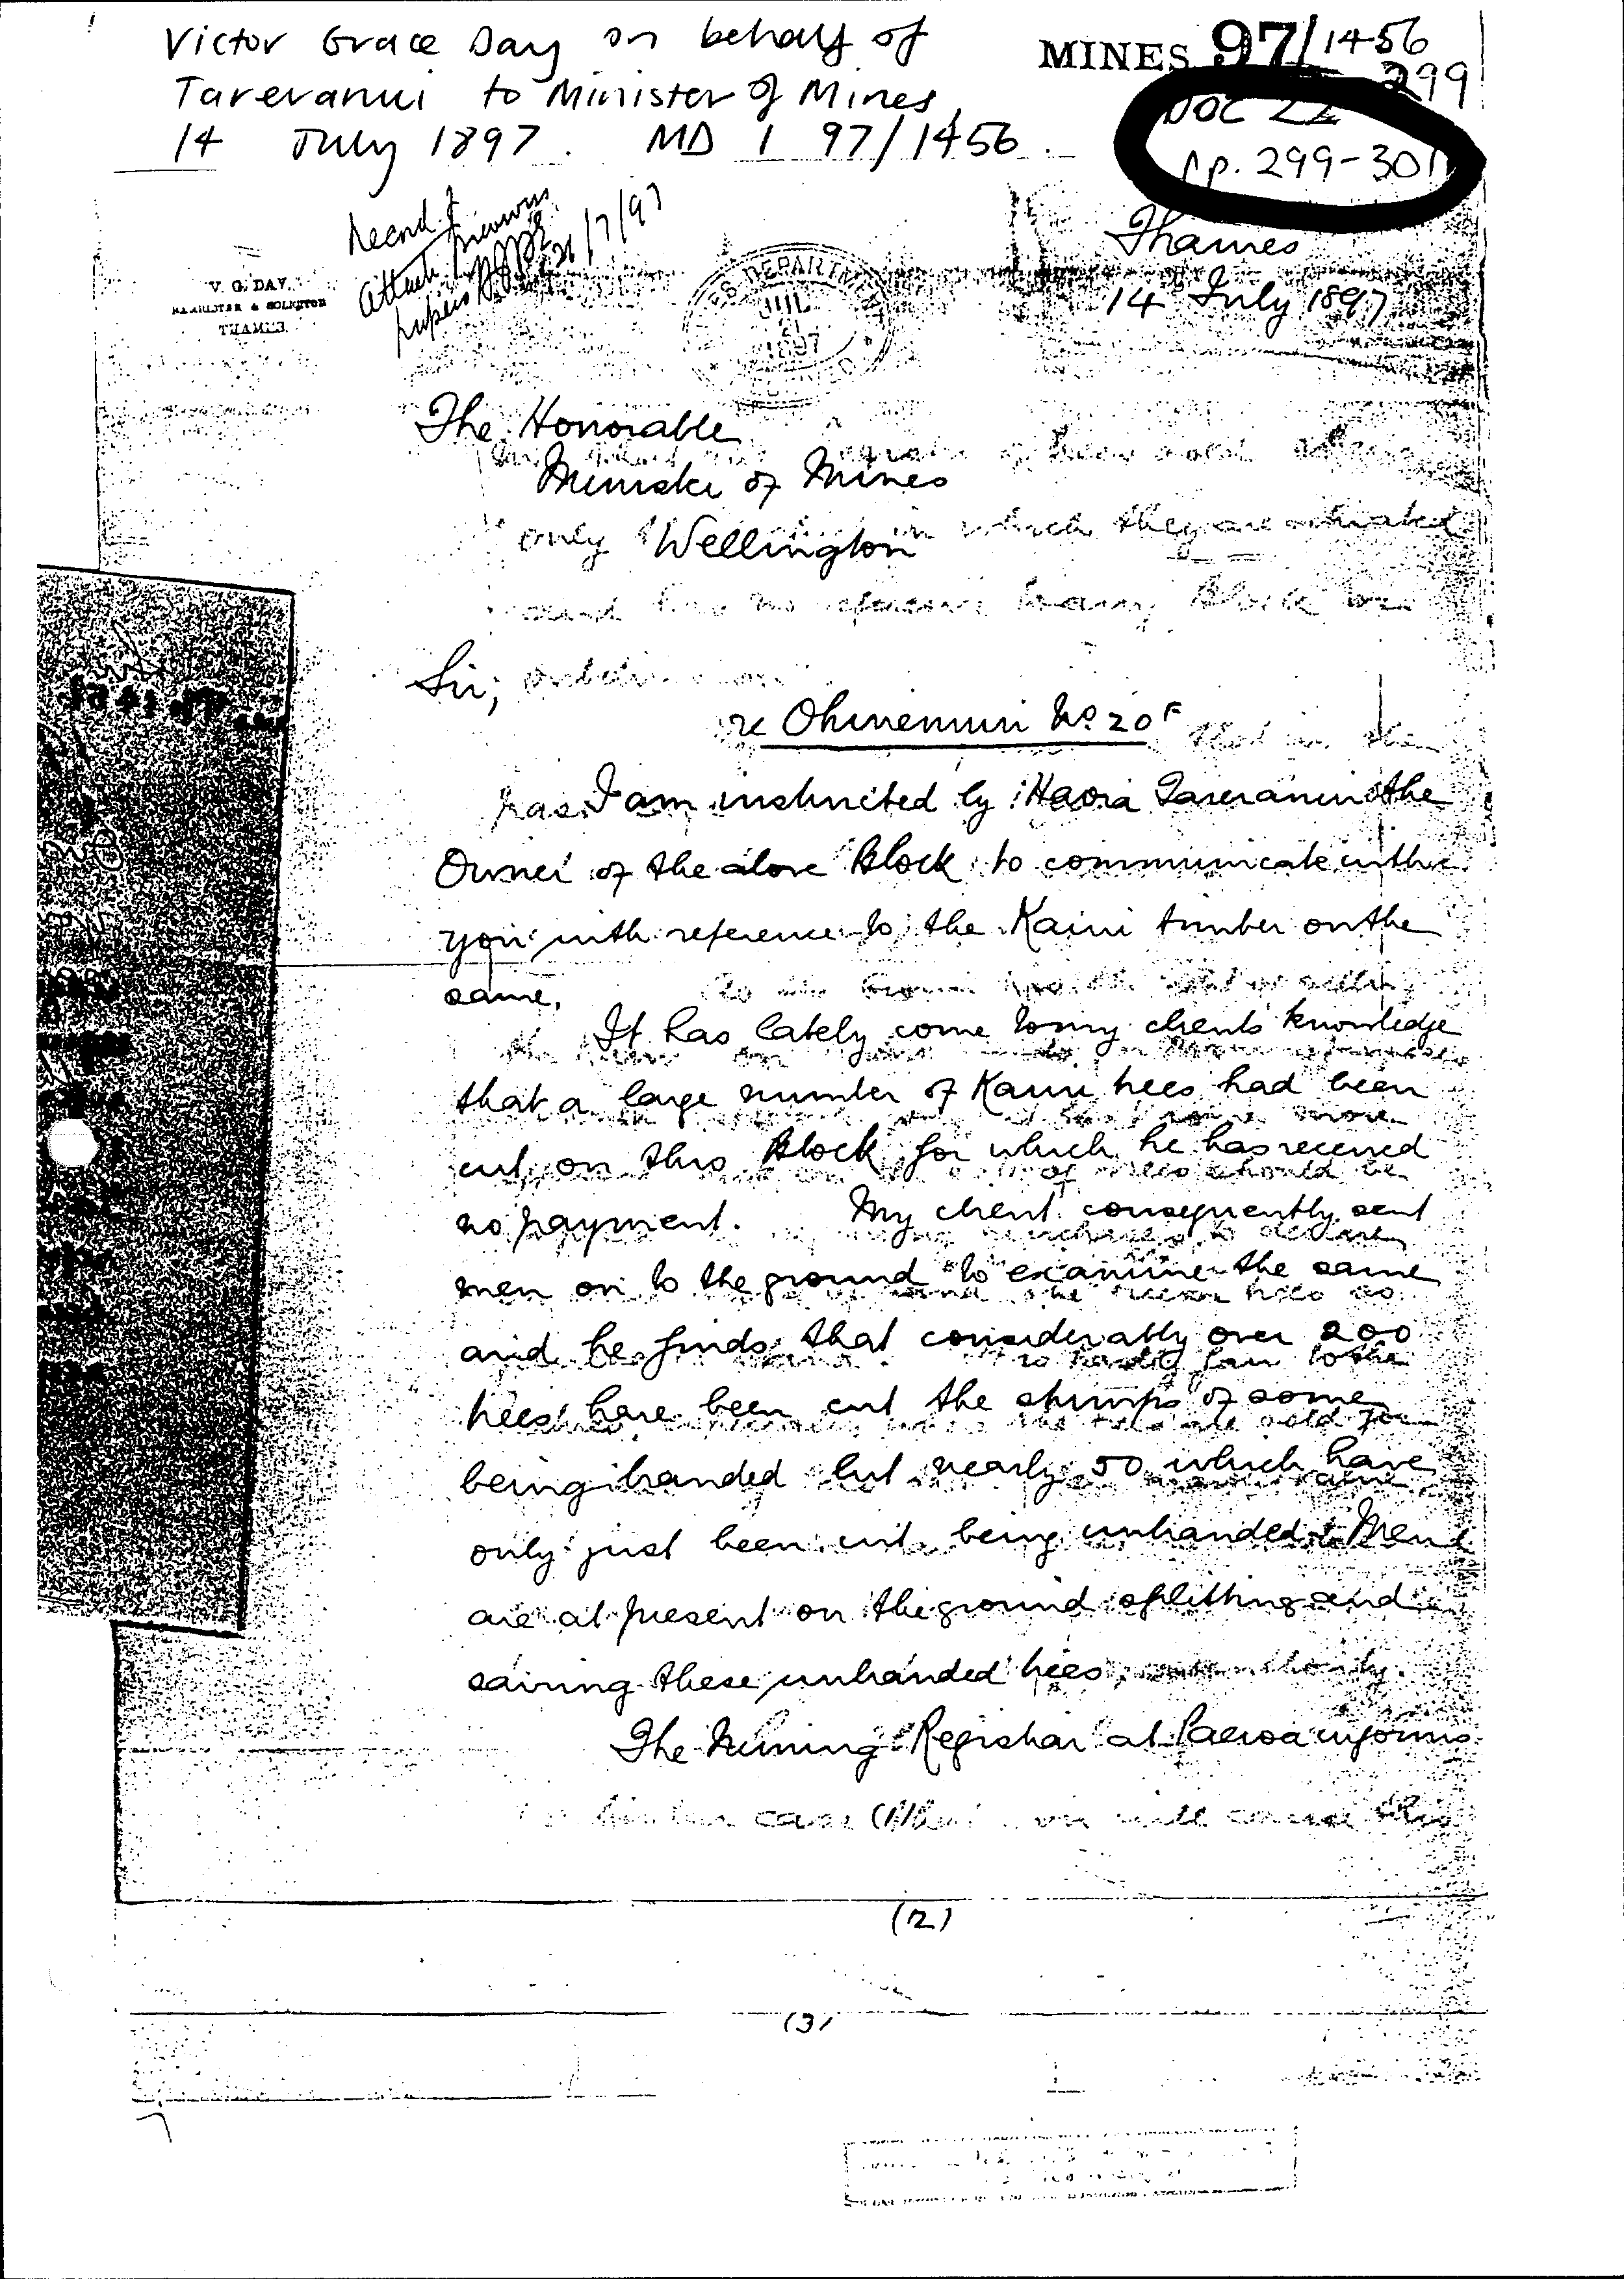 Victor Grace Day on behalf of
Tareranui to Minister of Mines
14 July 1897. MD 1 97/1456.
MINES 97/1456
299
DOC 22
pp. 299-301
Record &
attach previous
papers
21/7/97
V. G. DAY,
BARRISTER & SOLICITOR
THAMES.
MINES DEPARTMENT
JUL
21
1897
Thames
14th July 1897
The Honorable
Minister of Mines
Wellington
Sir,
re Ohinemuri No 20F
I am instructed by Haora Tareranui the
Owner of the above Block to communicate with
you with reference to the Kauri timber on the
same.
It has lately come to my clients knowledge
that a large number of Kauri trees had been
cut on this Block for which he has received
no payment. My client consequently sent
men on to the ground to examine the same
and he finds that considerably over 200
trees have been cut the stumps of some
being branded but nearly 50 which have
only just been cut being unbranded & Men
are at present on the ground splitting and
sawing these unbranded trees
The Mining Registrar at Paeroa informs
(2)
(3)